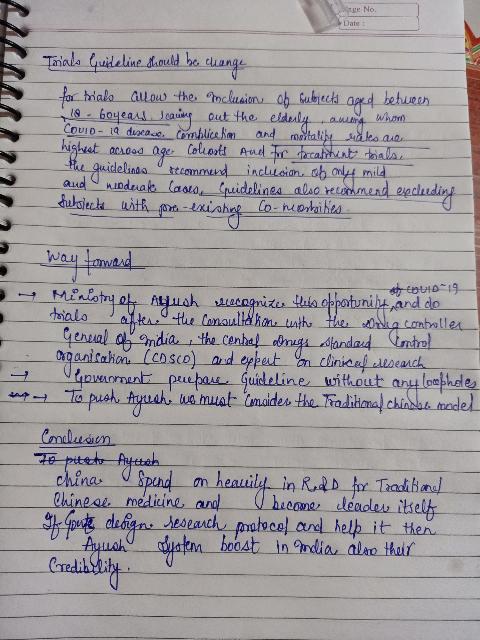 age No.
Date :
Trials Guideline should be change
for trials allow the inclusion of subjects aged between
18 - 60years, leaving out the elderly, among whom
COVID-19 disease complication and mortality rates are
highest across age cohosts And for treatment trials,
the guidelines recommend inclusion of only mild
and moderate cases, Guidelines also recommend excluding
subjects with pre-existing Co-morbities.
Way forward
→ Ministry of Ayush recognize this opportunity of COVID-19 and do
trials after the consultation with the drug controller
General of India, the central drugs standard control
organisation (CDSCO) and expert on clinical research
→ Government prepare Guideline without any loopholes
→ To push Ayush we must consider the Traditional chinese model
Conclusion
To push Ayush
china spend on heavily in R&D for Traditional
Chinese medicine and become leader itself
If Govt design research protocol and help it then
Ayush System boost in India also their
Credibility.